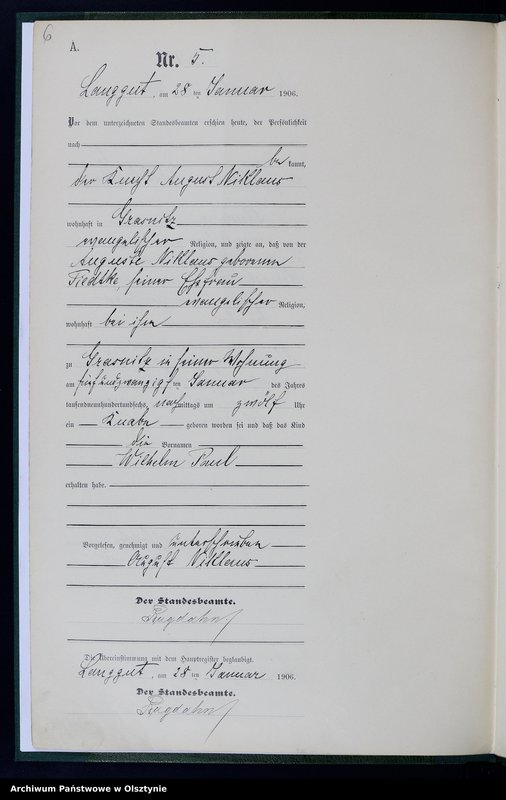 6
A.
Nr. 5.
Langgut, am 28 ten Januar 1906.
Vor dem unterzeichneten Standesbeamten erschien heute, der Persönlichkeit
nach
be kannt,
der Knecht August Niklaus
wohnhaft in Grasnitz
evangelischer Religion, und zeigte an, daß von der
Auguste Niklaus geborenen
Tiedtke, seiner Ehefrau
evangelischer Religion,
wohnhaft bei ihm
zu Grasnitz in seiner Wohnung
am fünfundzwanzigsten Januar des Jahres
tausendneunhundertundsechs, nachmittags um zwölf Uhr
ein Knabe geboren worden sei und daß das Kind
die Vornamen
Wilhelm Paul
erhalten habe.
Vorgelesen, genehmigt und unterschrieben
August Niklaus
Der Standesbeamte.
Die Übereinstimmung mit dem Hauptregister beglaubigt.
Langgut, am 28 ten Januar 1906.
Der Standesbeamte.
Archiwum Państwowe w Olsztynie